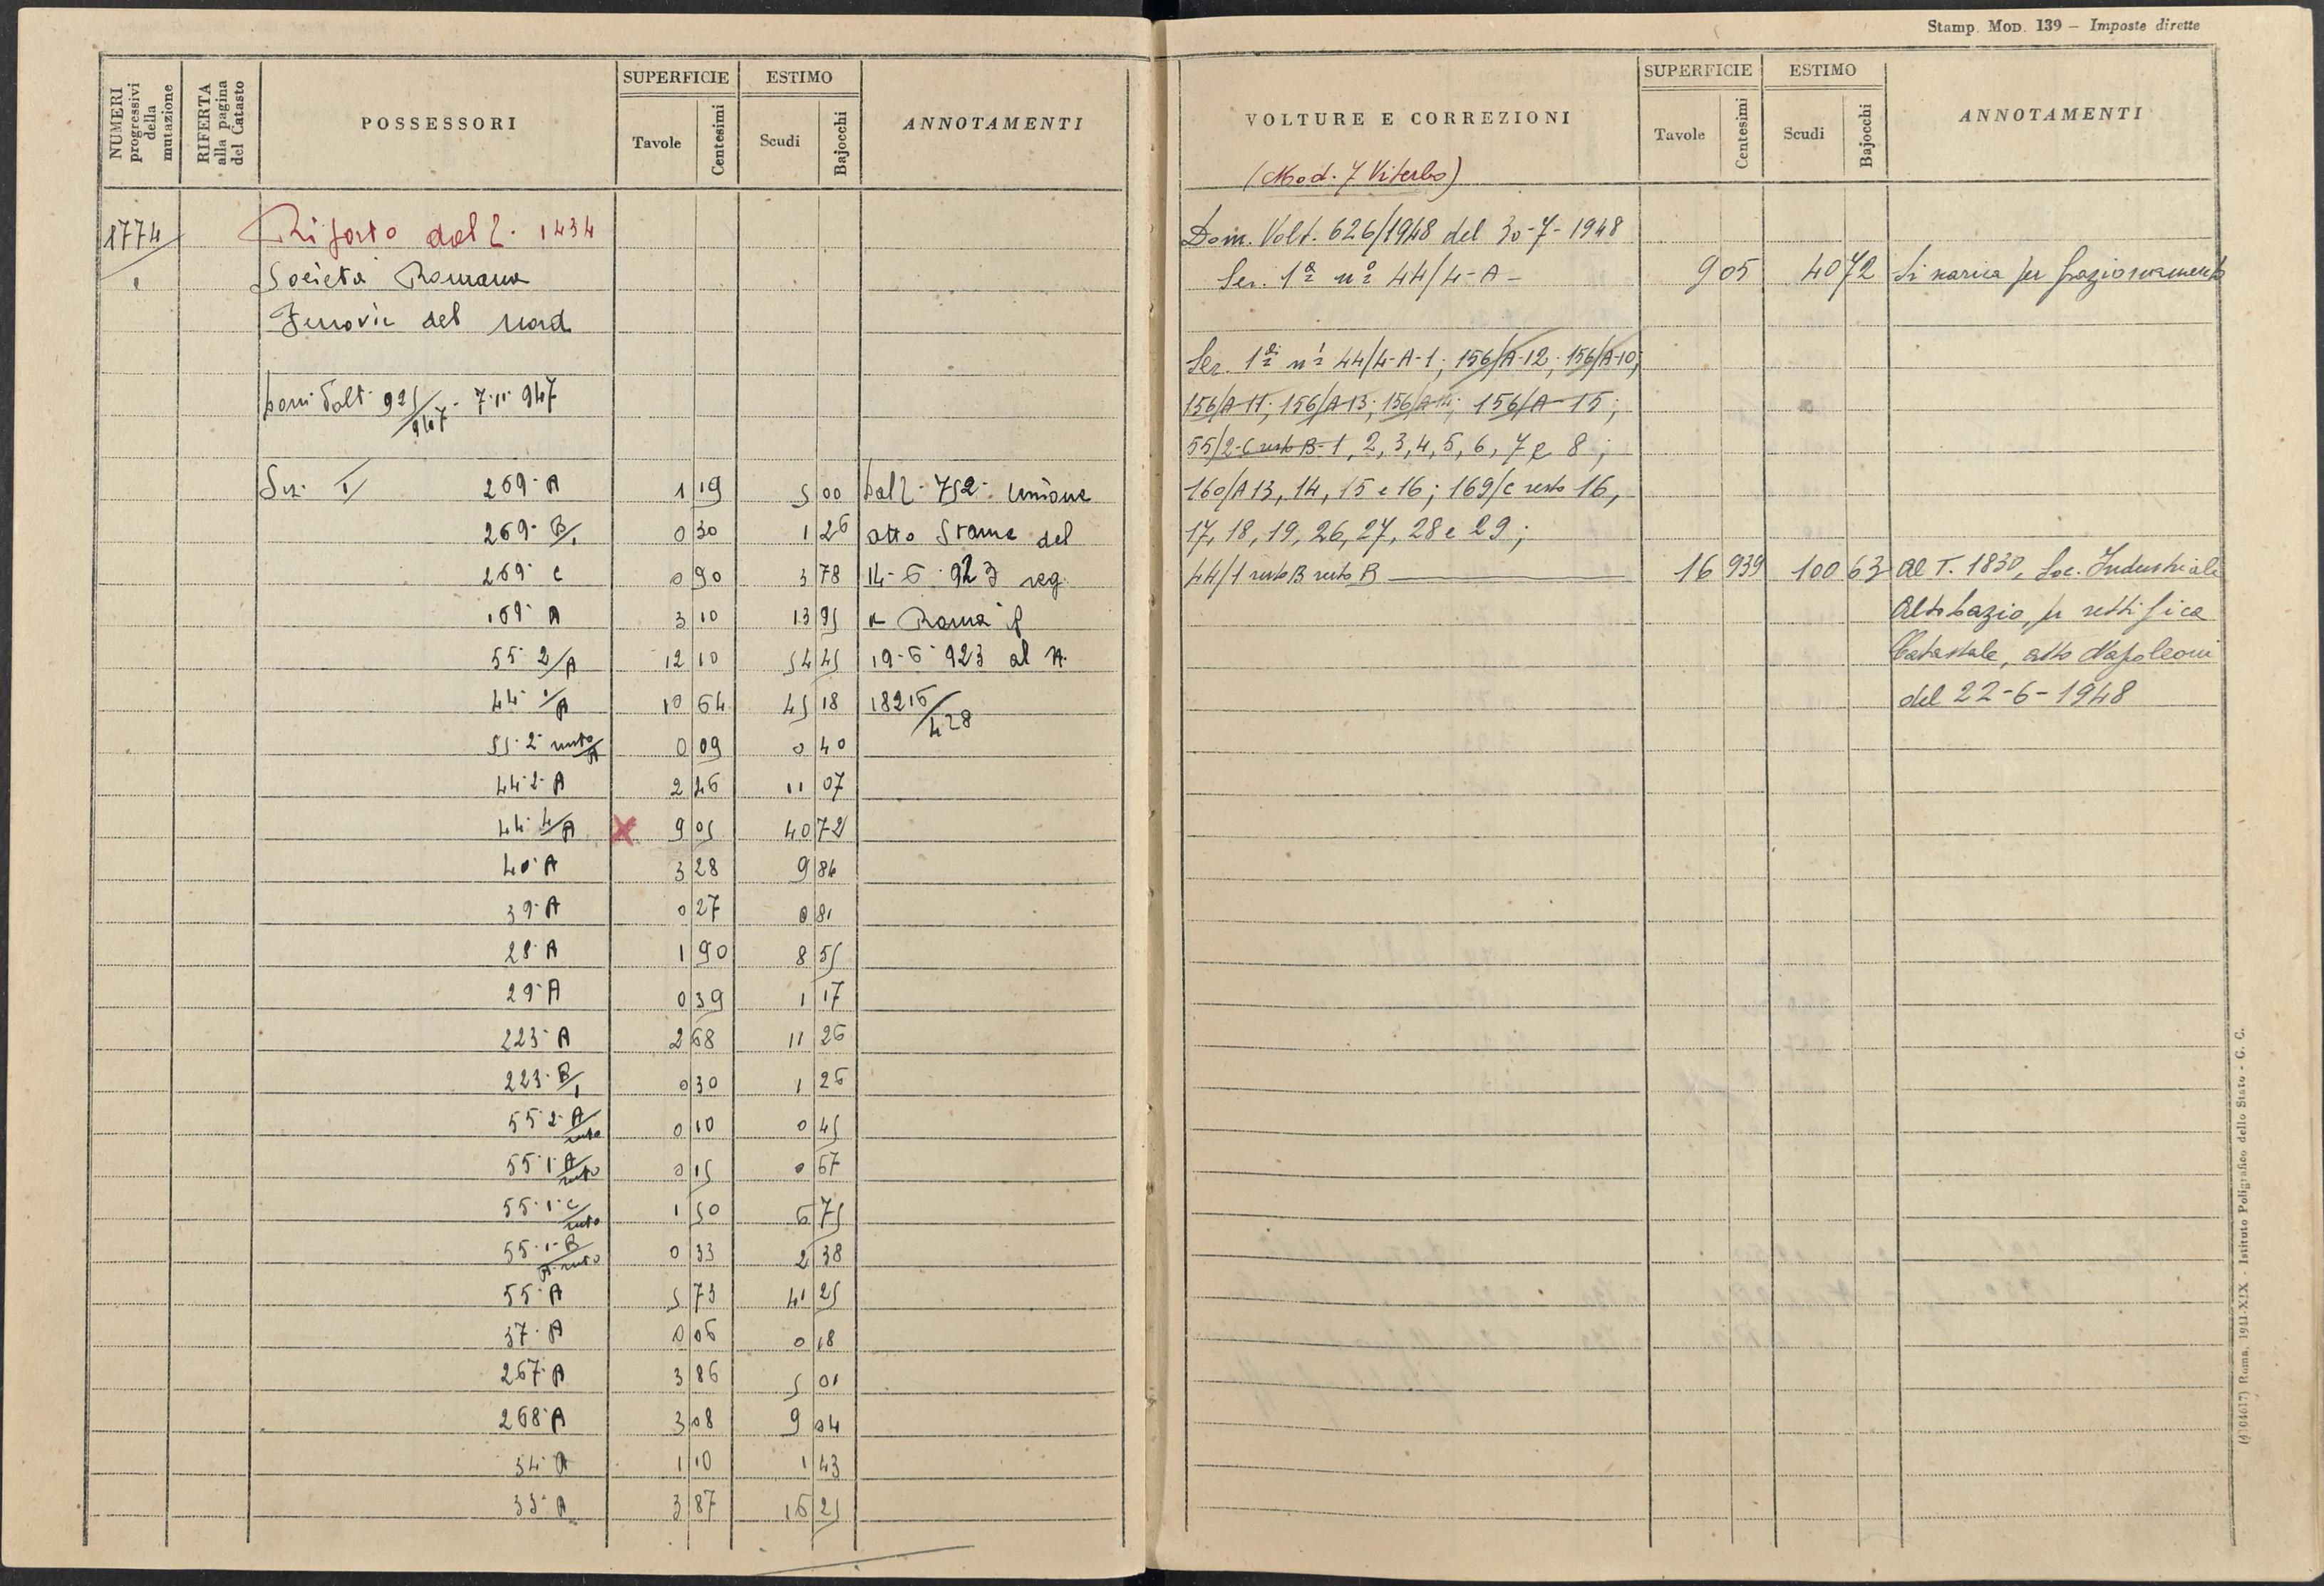 NUMERI progressivi della mutazione
RIFERTA alla pagina del Catasto
POSSESSORI
SUPERFICIE
Tavole
Centesimi
ESTIMO
Scudi
Bajocchi
ANNOTAMENTI
1774/1
Riporto dal 2. 1434
Società Romana
Ferrovie del Nord
Dom Volt. 925/947 - 7.11.947
Sez. I/ 269-A 1 19 5 00 Dal 2. 752. unione
269-B/1 0 30 1 26 atto Stame del
269-c 0 90 3 78 14-6-923 reg.
169-A 3 10 13 95 a Roma il
55-2/A 12 10 54 45 19-6-923 al N.
44-1/A 10 64 45 18 18216/428
55-2 resto/A 0 09 0 40
44-2-A 2 46 11 07
44-4/A X 9 05 40 72
40-A 3 28 9 84
39-A 0 27 0 81
28-A 1 90 8 55
29-A 0 39 1 17
223-A 2 68 11 26
223-B/1 0 30 1 26
55-2-A/resto 0 10 0 45
55-1-A/resto 0 15 0 67
55-1-c/resto 1 50 6 75
55-1-B/A-resto 0 33 2 38
55-A 5 73 41 25
37-A 0 06 0 18
267-A 3 86 5 01
268-A 3 08 9 04
34-A 1 10 1 43
33-A 3 87 16 25
Stamp. Mod. 139 – Imposte dirette
VOLTURE E CORREZIONI
(Mod. 7 Viterbo)
SUPERFICIE
Tavole
Centesimi
ESTIMO
Scudi
Bajocchi
ANNOTAMENTI
Dom. Volt. 626/1948 del 30-7-1948
Sez. 1ª nº 44/4-A- 9 05 40 72 Si scarica per frazionamento
Sez. 1ª nⁱ 44/4-A-1; 156/A-12; 156/A-10;
156/A-11; 156/A-13; 156/A-14; 156/A-15;
55/2-C resto B-1, 2, 3, 4, 5, 6, 7 e 8;
160/A13, 14, 15 e 16; 169/c resto 16,
17, 18, 19, 26, 27, 28 e 29;
44/1 resto B resto B — 16 939 100 63 Al T. 1830, Soc. Industriale
Alto Lazio, per rettifica
Catastale, atto Napoleoni
del 22-6-1948
(4104617) Roma, 1941-XIX - Istituto Poligrafico dello Stato - G. C.